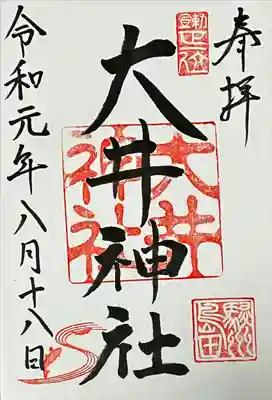 奉拝
大井神社
大井
神社
駿州
島田
令和元年八月十八日